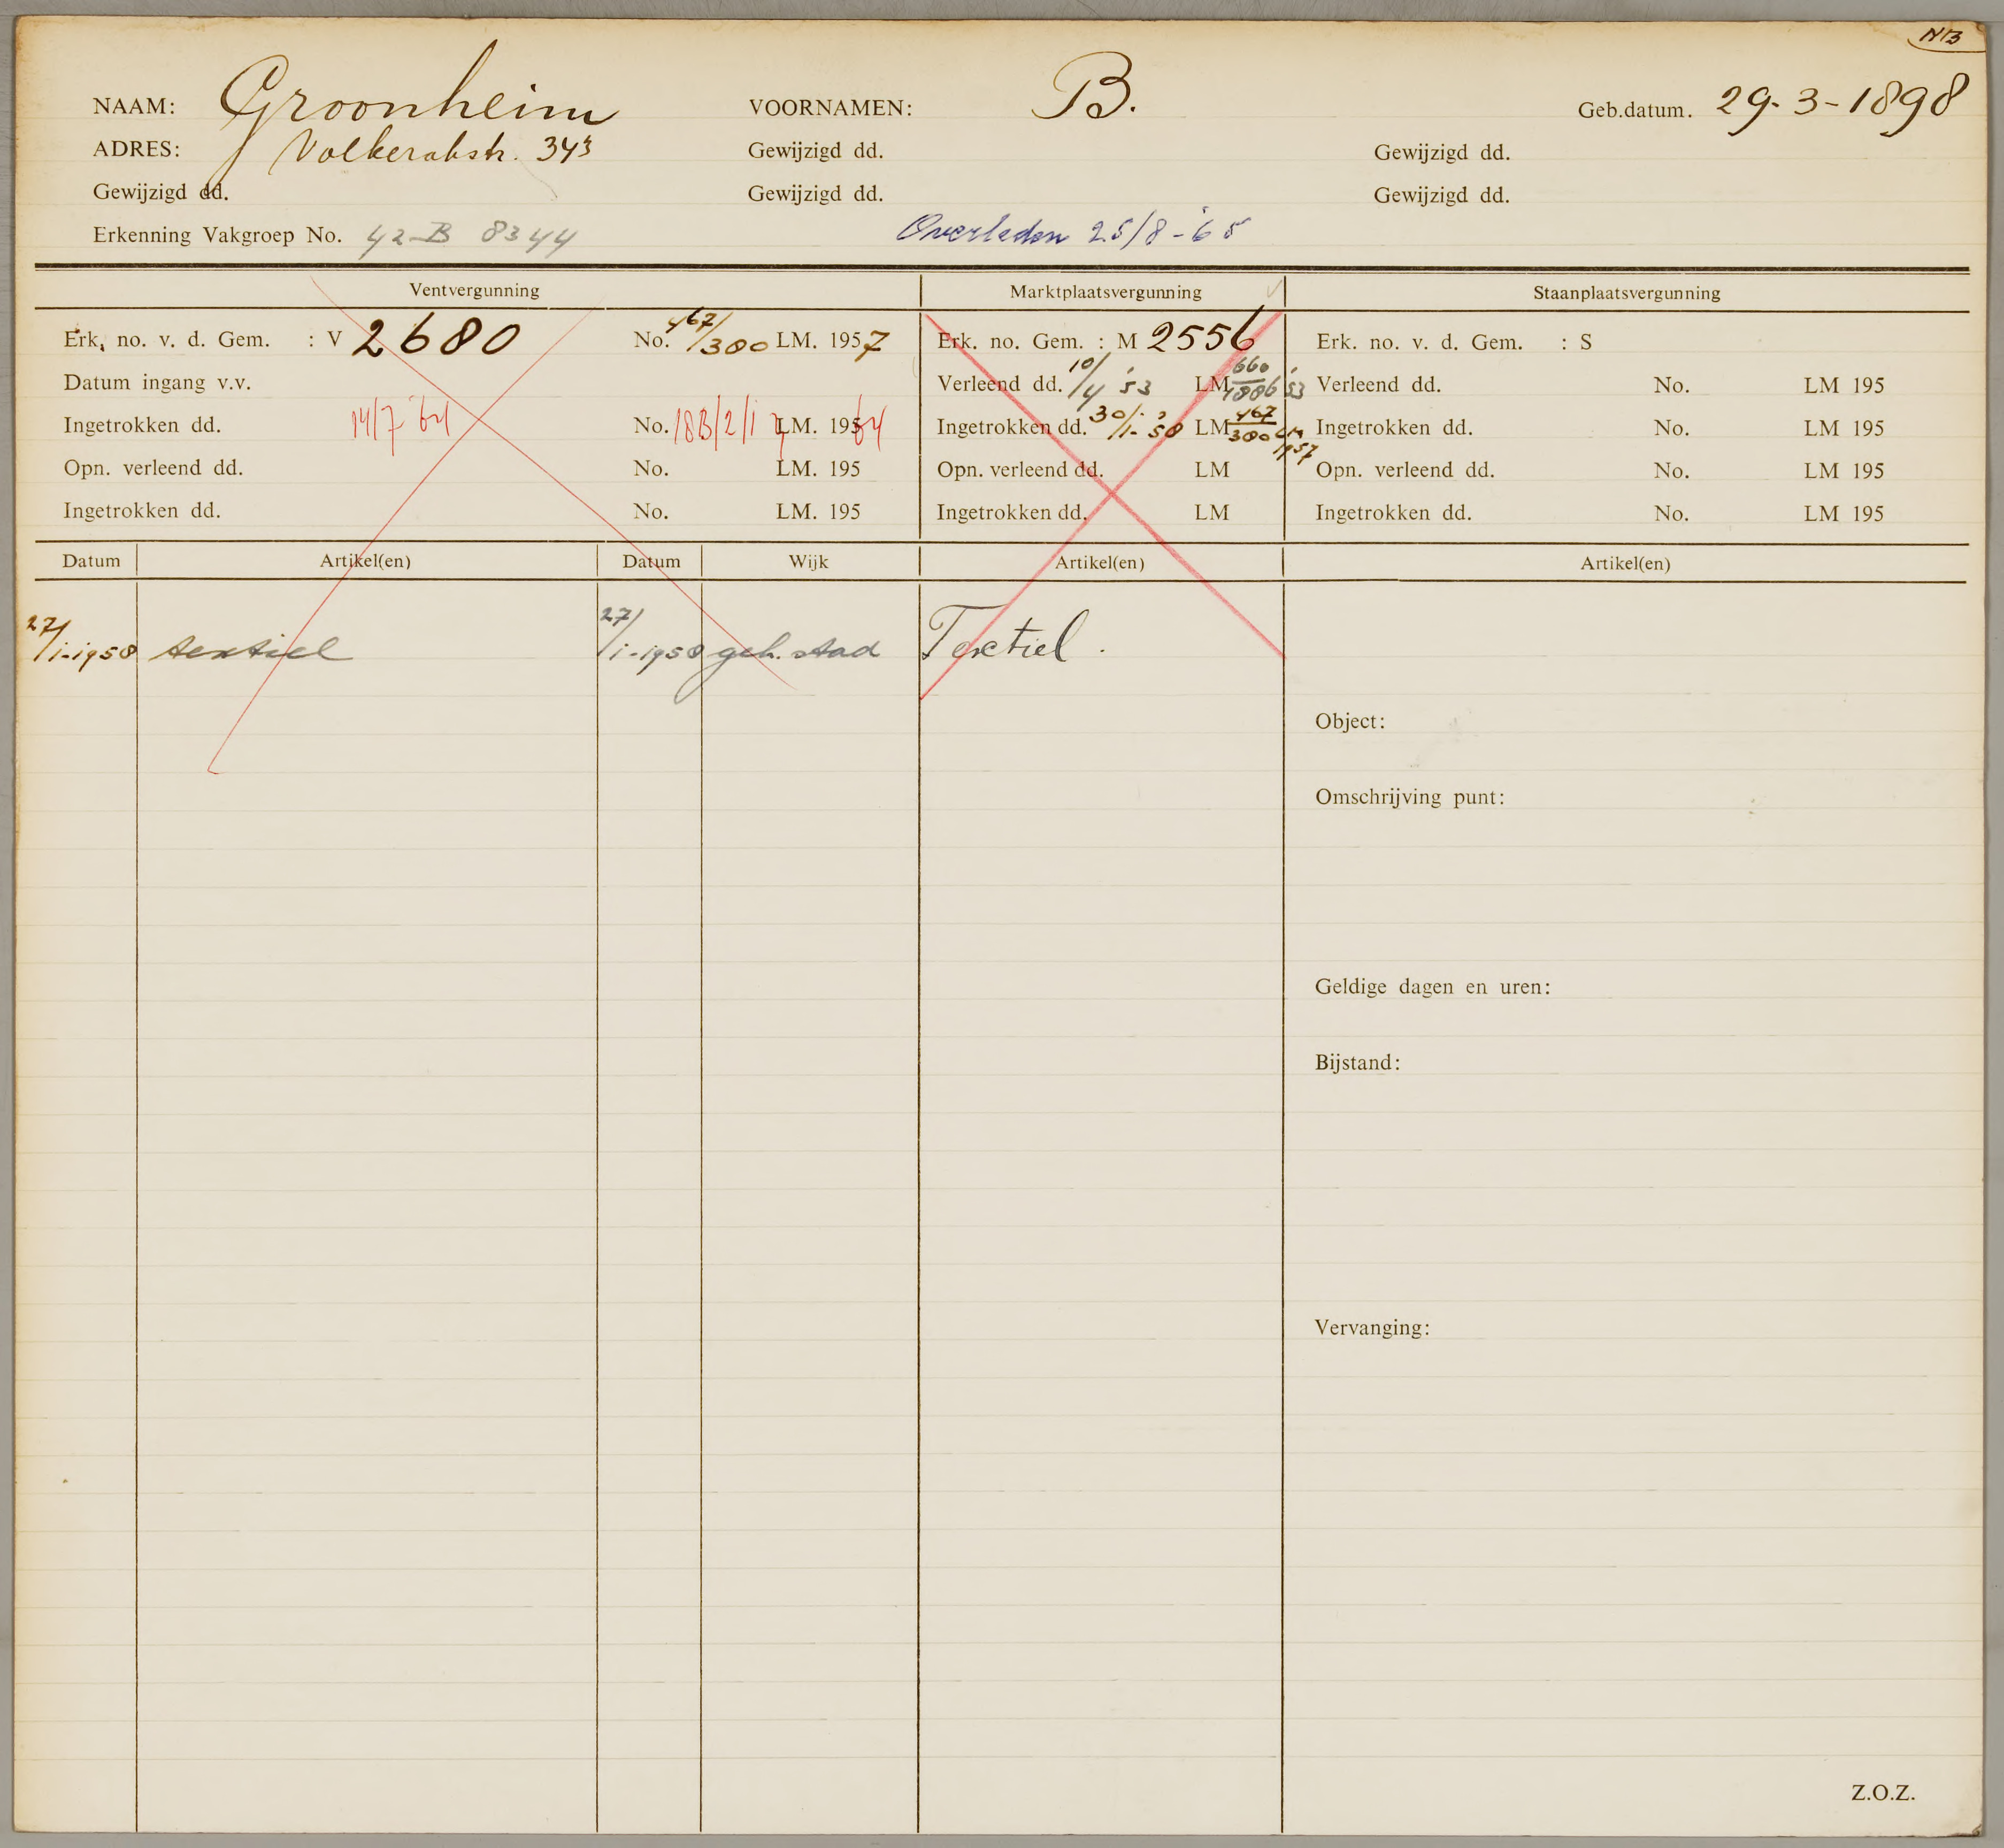 NB
NAAM: Groonheim VOORNAMEN: B. Geb.datum. 29-3-1898
ADRES: Volkerakstr. 34³ Gewijzigd dd. Gewijzigd dd.
Gewijzigd dd. Gewijzigd dd. Gewijzigd dd.
Erkenning Vakgroep No. 42-B 8344 Overleden 25/8-'65
Ventvergunning Marktplaatsvergunning Staanplaatsvergunning
Erk. no. v. d. Gem. : V 2680 No. 467/380 LM. 1957 Erk. no. Gem. : M 2556 Erk. no. v. d. Gem. : S
Datum ingang v.v. Verleend dd. 10/4 '53 LM 660/1886 '53 Verleend dd. No. LM 195
Ingetrokken dd. 14/7 '64 No. 18B/2/1 LM. 1964 Ingetrokken dd. 30/1-'58 LM 467/380 LM 1957 Ingetrokken dd. No. LM 195
Opn. verleend dd. No. LM. 195 Opn. verleend dd. LM Opn. verleend dd. No. LM 195
Ingetrokken dd. No. LM. 195 Ingetrokken dd. LM Ingetrokken dd. No. LM 195
Datum Artikel(en) Datum Wijk Artikel(en) Artikel(en)
27/1-1958 textiel 27/1-1958 geh. stad Textiel.
Object:
Omschrijving punt:
Geldige dagen en uren:
Bijstand:
Vervanging:
Z.O.Z.